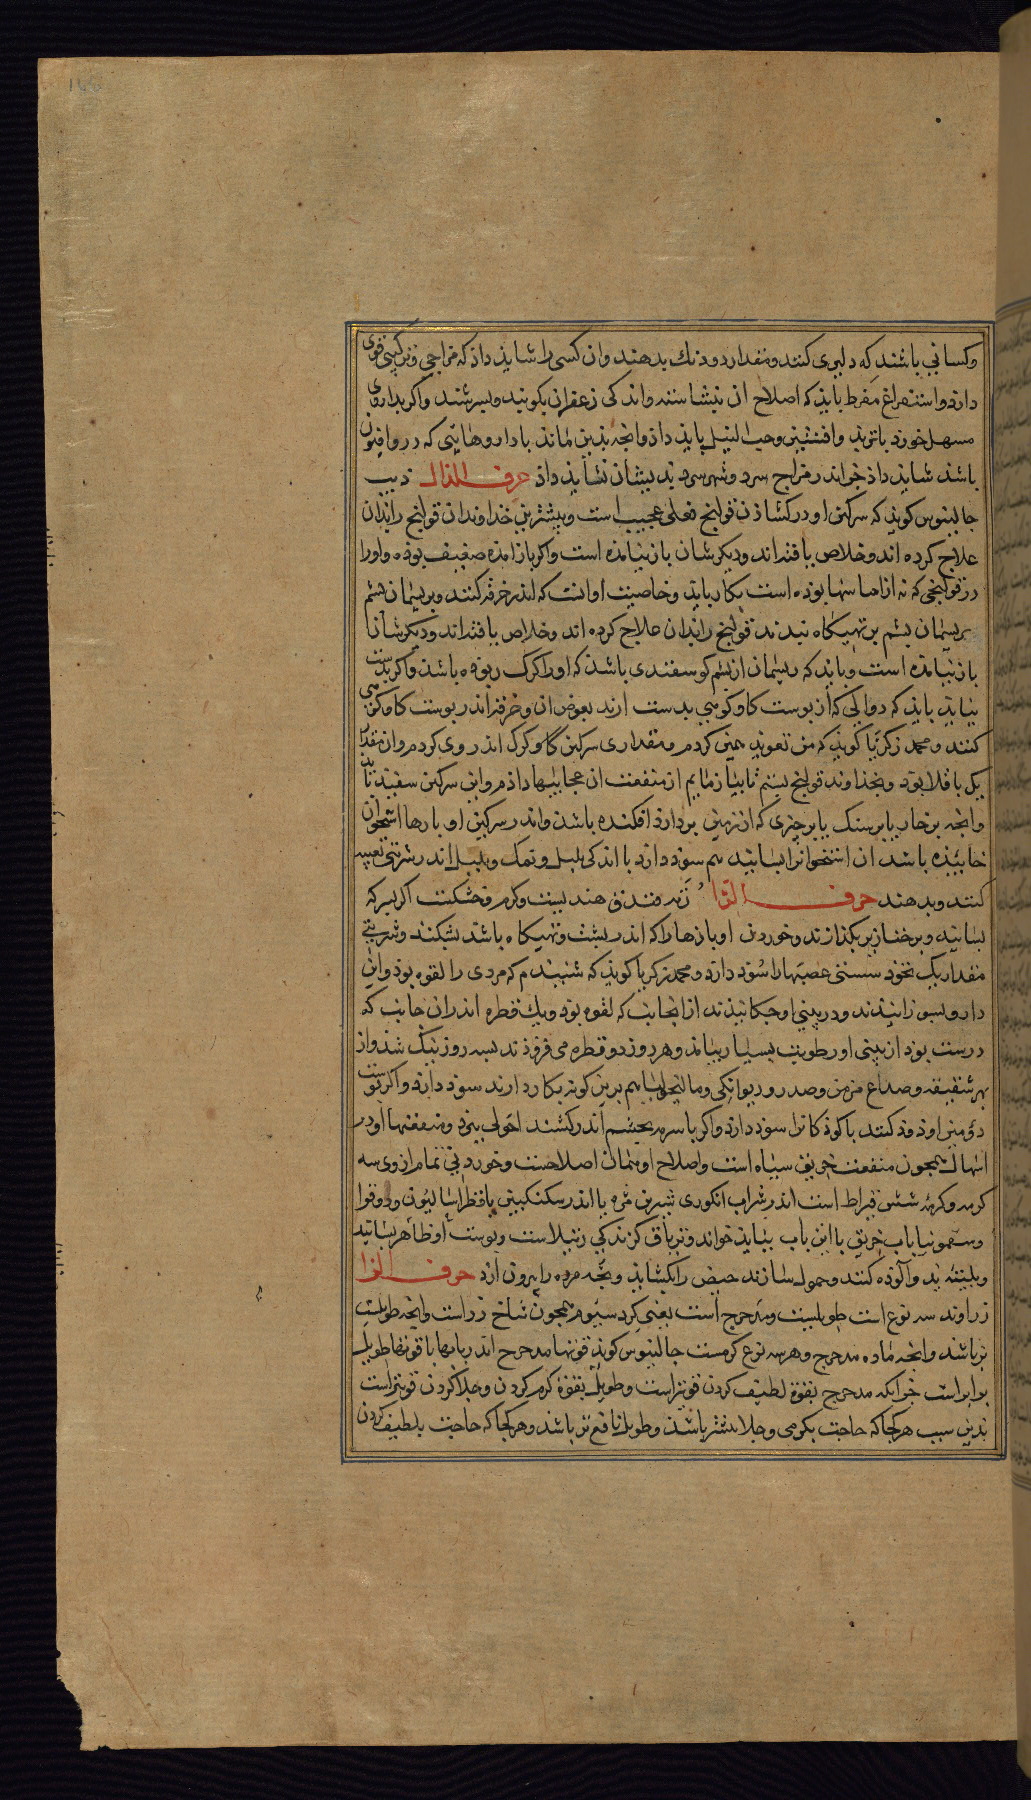 وکسانی باشند که دلیری کنند ومقدار دو دنك بدهند وان کسی را شاید داذ که مزاجی وترکیبی قوی
دارد واستفراغ مفرط باید که اصلاح ان بنشاسته واندکی زعفران بکوبند وبسرشند واکر بداروی
مسهل خورد با تربد وافسنتین وحب النیل باید داذ وانچه بدین ماند با داروهایی که درو افیون
باشد شاید داذ خواندر مزاج سرد وشهر سرد بدیشان نشاید داذ حرف الذال ذیب
جالینوس کوید که سرکین او در کشاذن قولنج فعلی عجیب است وبیشترین خداوندان قولنج را بدان
علاج کرده اند وخلاص یافته اند ودیکرشان باز نیامذه است واکر باز امذه ضعیف بوذه واورا
در قولنجی که نه از اماسها بوذه است بکار باید وخاصیت او انست که اندر خرقه کنند وبریسمان پشم
بریسمان پشم بر تهیکاه بندند قولنج را بدان علاج کرده اند وخلاص یافته اند ودیکرشان
باز نیامذه است وباید که ریسمان از پشم کوسفندی باشذ که اورا کرک ربوده باشذ واکر بدست
نیاید باید که دوالی که از پوست کاو کوهی بدست ارند بعوض ان وخرقه اندر پوست کاو کوهی
کنند ومحمد زکریا کوید که من تعویذ همین کردم ومقداری سرکین کاو وکرک اندر وی کردم وان مقدار
یك باقلا بود وبخداوند قولنج بستم تا بیازمایم از منفعت ان عجایبها داذم واین سرکین سفید باید
وانچه بر خار یا بر سنك یا بر چیزی که از زمین بر دارد افکنده باشذ واندر سرکین او پارها استخوان
خاییده باشد ان استخوانرا بسایند هم سوذ دارد با اندکی پلپل ونمک وپلپل اندر شربتی تعبیه
کنند وبدهند حرف الرا رته فندق هندیست وکرم وخشکست اکر بسرکه
بسایند وبر خنازیر بکذارند وخوردن او باذها را که اندر پشت وتهیکاه باشد بشکند وشربتی
مقدار یک نخود سستی عصبها را سوذ دارد ومحمد زکریا کوید که شنیدم که مردی را لقوه بوذ واین
دارو بسوزانیدند ودر بینی او چکانیدند از انجانب که لقوه بوذ ویك قطره اندران جانب که
درست بوذ از بینی او رطوبت بسیار بیاند وهر روز دو قطره می فزوذند بسه روز نیک شذ واز
بهر شقیقه وصداع مزمن وصدر ودیوانکی ومالیخولیا هم برین کونه بکار دارند سوذ دارد واکر پوست
در بینی او دود کنند با کوذکانرا سوذ دارد واکر با سرمه بچشم اندر کشند احولی ببرد ومنفعتها او در
اسهال همچون منفعت خربق سیاه است واصلاح او همان اصلاحست وخوردنی تمام از وی سه
کرمه وکرمه شش قیراط است اندر شراب انکوری شیرین مزه یا اندر سکنکبین با قطراسالیون ودوقوا
وسقمونیا باب خربق با این باب بباید خواند وتریاق کزندکی رتیلاست وپوست او ظاهر بسایند
وبلیته بذو الوده کنند وحمول سازند حیض را بکشاید وبچّه مرده را بیرون ارد حرف الزا
زراوند سه نوع است طویلست ومدحرج است یعنی کرد سیوم همچون شاخ زر است وانچه طویلست
نر باشد وانچه ماده مدحرج وهر سه نوع کرمست جالینوس کوید قوتها مدحرج اندر بابها با قوتها طویل
برابر است جزانکه مدحرج بقوة لطیف کردن قویتر است وطویل بقوة کرم کردن وجلا کردن قویتر است
بدین سبب هر کجا که حاجت بکرمی وجلا بیشتر باشذ وطویل نافع تر باشد وهر کجا که حاجت بلطیف کردن